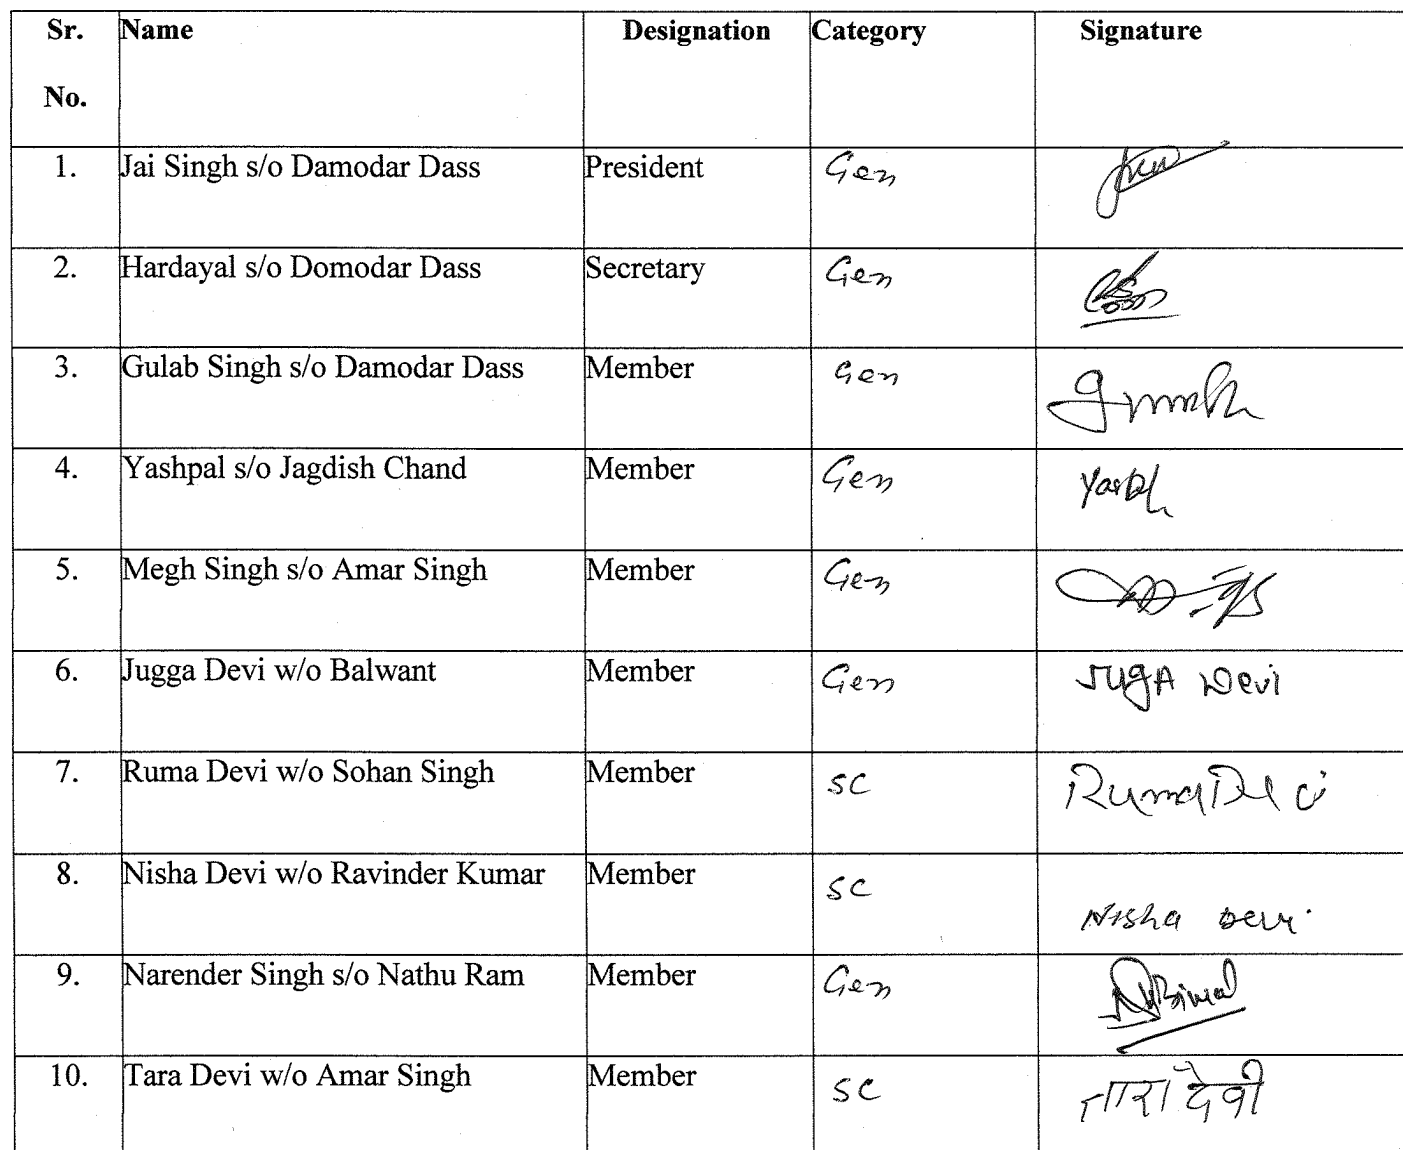 Sr. No. Name Designation Category Signature
1. Jai Singh s/o Damodar Dass President Gen
2. Hardayal s/o Domodar Dass Secretary Gen
3. Gulab Singh s/o Damodar Dass Member Gen
4. Yashpal s/o Jagdish Chand Member Gen
5. Megh Singh s/o Amar Singh Member Gen
6. Jugga Devi w/o Balwant Member Gen JUgA Devi
7. Ruma Devi w/o Sohan Singh Member SC Ruma Devi
8. Nisha Devi w/o Ravinder Kumar Member SC Nisha Devi
9. Narender Singh s/o Nathu Ram Member Gen
10. Tara Devi w/o Amar Singh Member SC तारा देवी